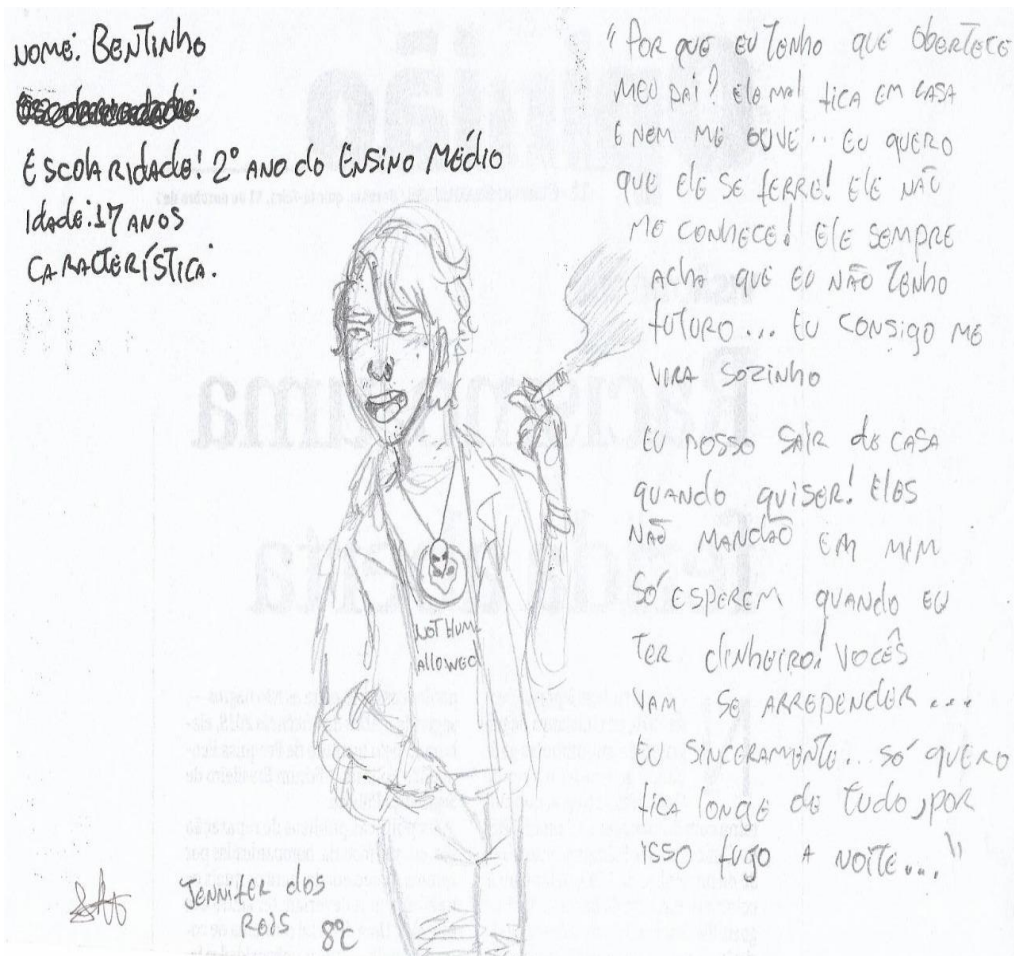 NOME: BENTINHO
ESCOLARIDADE: 2º ANO DO ENSINO MÉDIO
IDADE: 17 ANOS
CARACTERÍSTICA:
"POR QUE EU TENHO QUE OBERTECE
MEU PAI? ELE MAL FICA EM CASA
E NEM ME OUVE... EU QUERO
QUE ELE SE FERRE! ELE NÃO
ME CONHECE! ELE SEMPRE
ACHA QUE EU NÃO TENHO
FUTURO... EU CONSIGO ME
VIRA SOZINHO
EU POSSO SAIR DE CASA
QUANDO QUISER! ELES
NÃO MANDÃO EM MIM
SÓ ESPEREM QUANDO EU
TER DINHEIRO! VOCÊS
VAM SE ARREPENDER...
EU SINCERAMENTE... SÓ QUERO
FICA LONGE DE TUDO, POR
ISSO FUGO A NOITE..."
NOT HUM
ALLOWED
JENNIFER DOS
REIS 8ºC